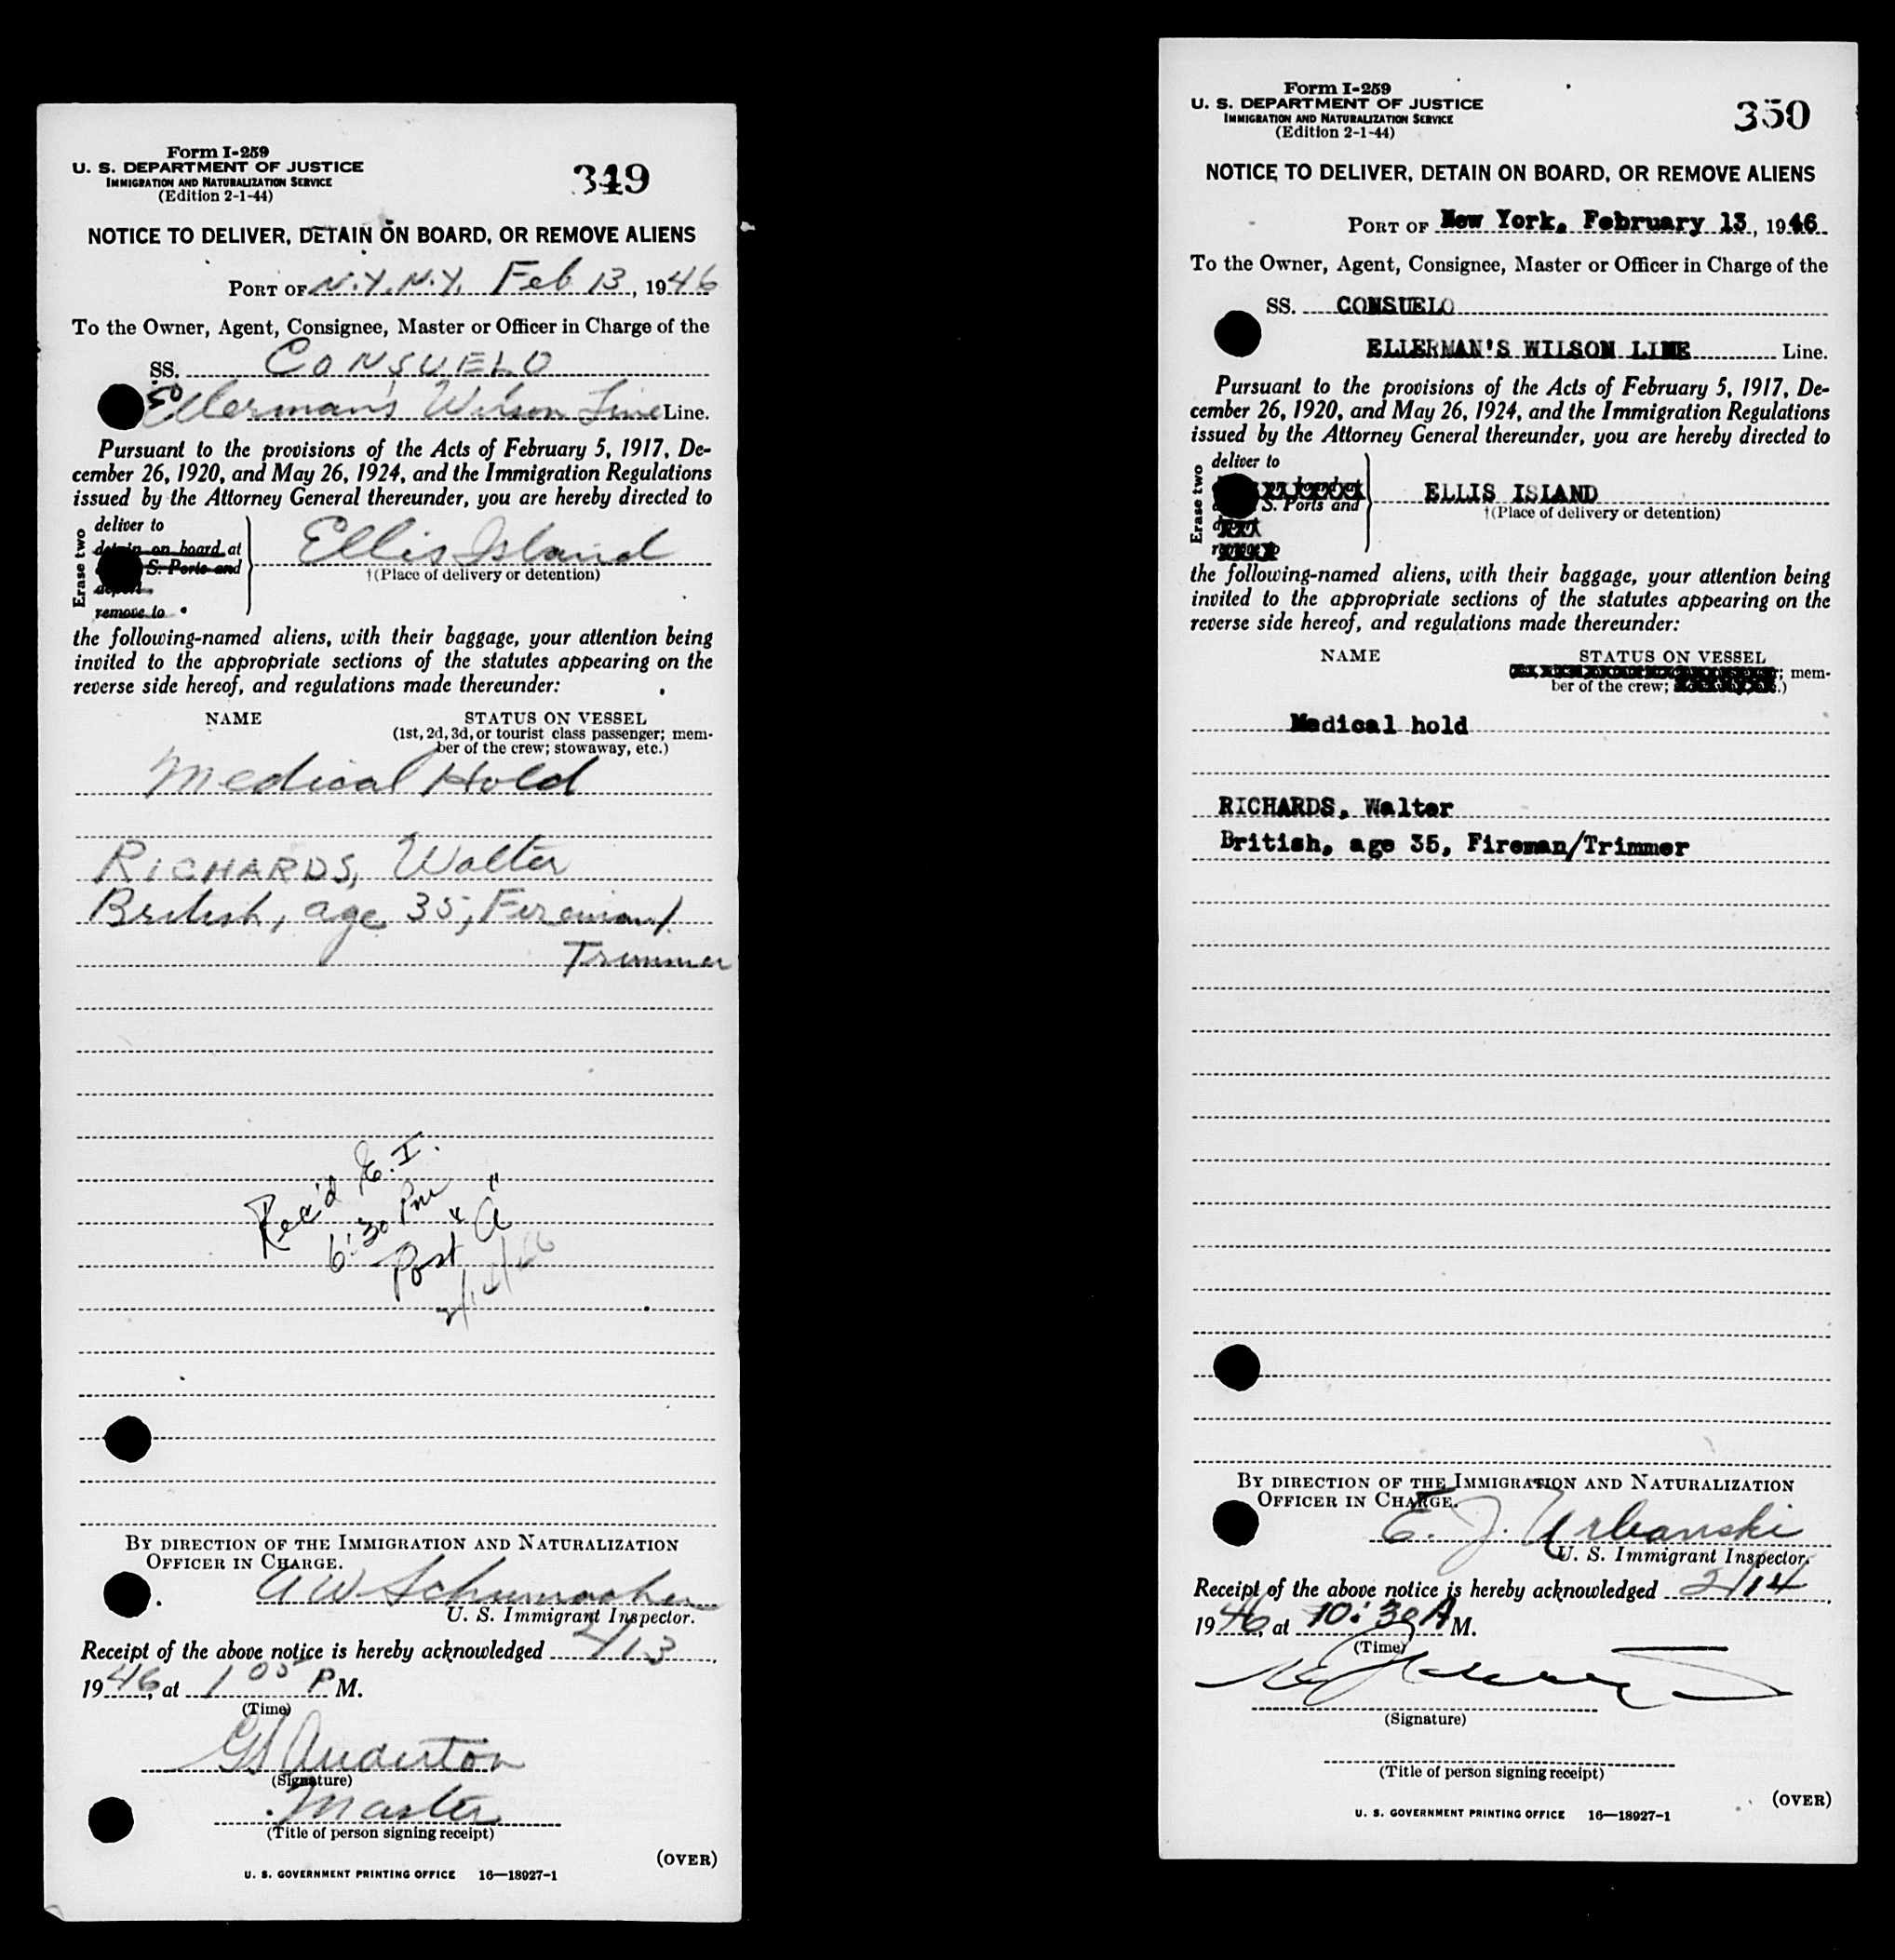 Form I-259
U. S. DEPARTMENT OF JUSTICE
IMMIGRATION AND NATURALIZATION SERVICE
(Edition 2-1-44)
349
NOTICE TO DELIVER, DETAIN ON BOARD, OR REMOVE ALIENS
PORT OF N.Y.N.Y. Feb 13, 1946
To the Owner, Agent, Consignee, Master or Officer in Charge of the
SS. CONSUELO
Ellerman's Wilson Line Line.
Pursuant to the provisions of the Acts of February 5, 1917, De-
cember 26, 1920, and May 26, 1924, and the Immigration Regulations
issued by the Attorney General thereunder, you are hereby directed to
Erase two
deliver to
detain on board at
S. Ports and
deport
remove to
Ellis Island
†(Place of delivery or detention)
the following-named aliens, with their baggage, your attention being
invited to the appropriate sections of the statutes appearing on the
reverse side hereof, and regulations made thereunder:
NAME STATUS ON VESSEL
(1st, 2d, 3d, or tourist class passenger; mem-
ber of the crew; stowaway, etc.)
Medical Hold
RICHARDS, Walter
British, age 35, Fireman/
Trimmer
Rec'd E.I.
6:30 Pm
Post "A"
2/14/46
BY DIRECTION OF THE IMMIGRATION AND NATURALIZATION
OFFICER IN CHARGE.
A W Schumacher
U. S. Immigrant Inspector.
Receipt of the above notice is hereby acknowledged 2/13,
1946, at 1 05 P M.
(Time)
GS Anderton
(Signature)
Master
(Title of person signing receipt)
(OVER)
U. S. GOVERNMENT PRINTING OFFICE 16—18927-1
Form I-259
U. S. DEPARTMENT OF JUSTICE
IMMIGRATION AND NATURALIZATION SERVICE
(Edition 2-1-44)
350
NOTICE TO DELIVER, DETAIN ON BOARD, OR REMOVE ALIENS
PORT OF New York, February 13, 1946
To the Owner, Agent, Consignee, Master or Officer in Charge of the
SS. CONSUELO
ELLERMAN'S WILSON LINE Line.
Pursuant to the provisions of the Acts of February 5, 1917, De-
cember 26, 1920, and May 26, 1924, and the Immigration Regulations
issued by the Attorney General thereunder, you are hereby directed to
Erase two
deliver to
on board at
S. Ports and
deport
remove to
ELLIS ISLAND
†(Place of delivery or detention)
the following-named aliens, with their baggage, your attention being
invited to the appropriate sections of the statutes appearing on the
reverse side hereof, and regulations made thereunder:
NAME STATUS ON VESSEL
mem-
ber of the crew;
Medical hold
RICHARDS, Walter
British, age 35, Fireman/Trimmer
BY DIRECTION OF THE IMMIGRATION AND NATURALIZATION
OFFICER IN CHARGE.
E. J. Urbanski
U. S. Immigrant Inspector.
Receipt of the above notice is hereby acknowledged 2/14,
1946, at 10:30 A M.
(Time)
(Signature)
(Title of person signing receipt)
(OVER)
U. S. GOVERNMENT PRINTING OFFICE 16—18927-1